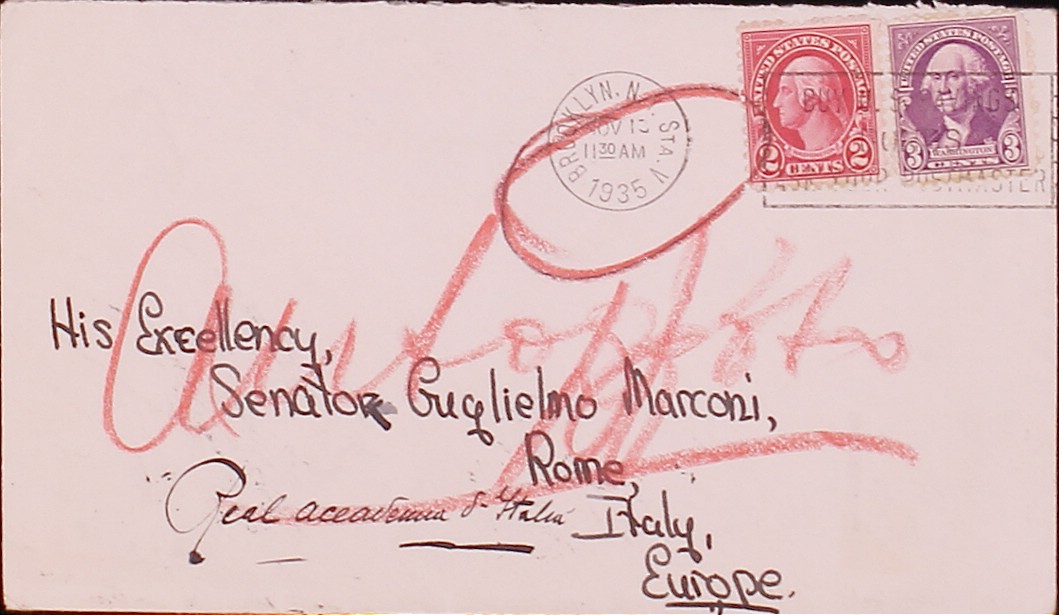 UNITED STATES POSTAGE
2 CENTS 2
UNITED STATES POSTAGE
WASHINGTON
3 CENTS 3
BROOKLYN, N.Y. STA. V
NOV 13
11 30 AM
1935
ASK YOUR POSTMASTER
His Excellency,
Senator Guglielmo Marconi,
Rome,
Real accademia d'Italia
Italy,
Europe.